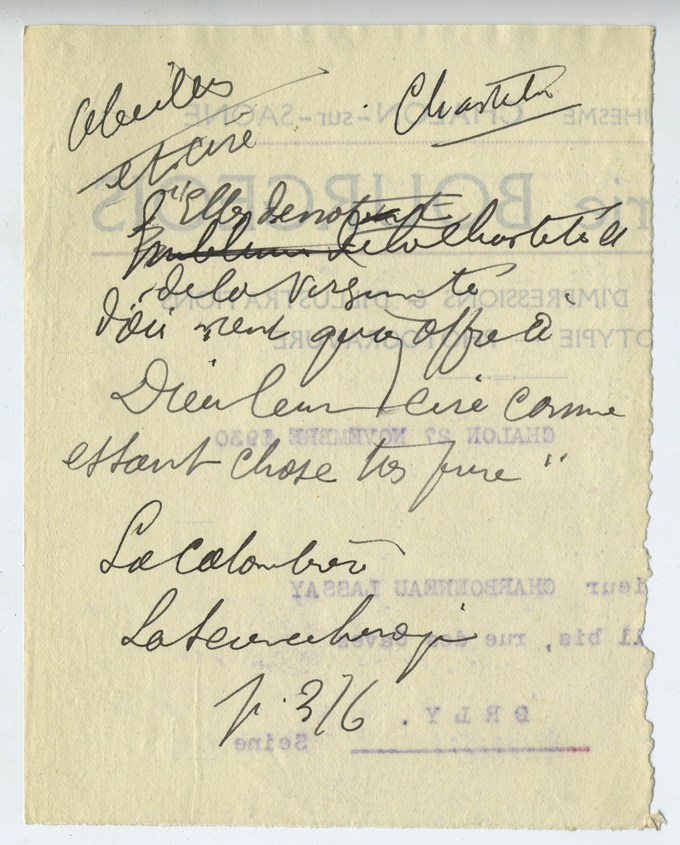 Abeilles
et cire
Chasteté
"Elles denotent
de la Chasteté &
de la virginité
d'où vient qu'on offre à
Dieu leur cire comme
estant chose très pure"
La Colombière
La Science heroique
p. 376
CHALON-sur-SAONE
BOURGEOIS
D'IMPRESSIONS & D'ILLUSTRATIONS
CHALON 27 NOVEMBRE 1930
ieur CHARBONNEAU LASSAY
11 bis, rue des
ORLY.
Seine